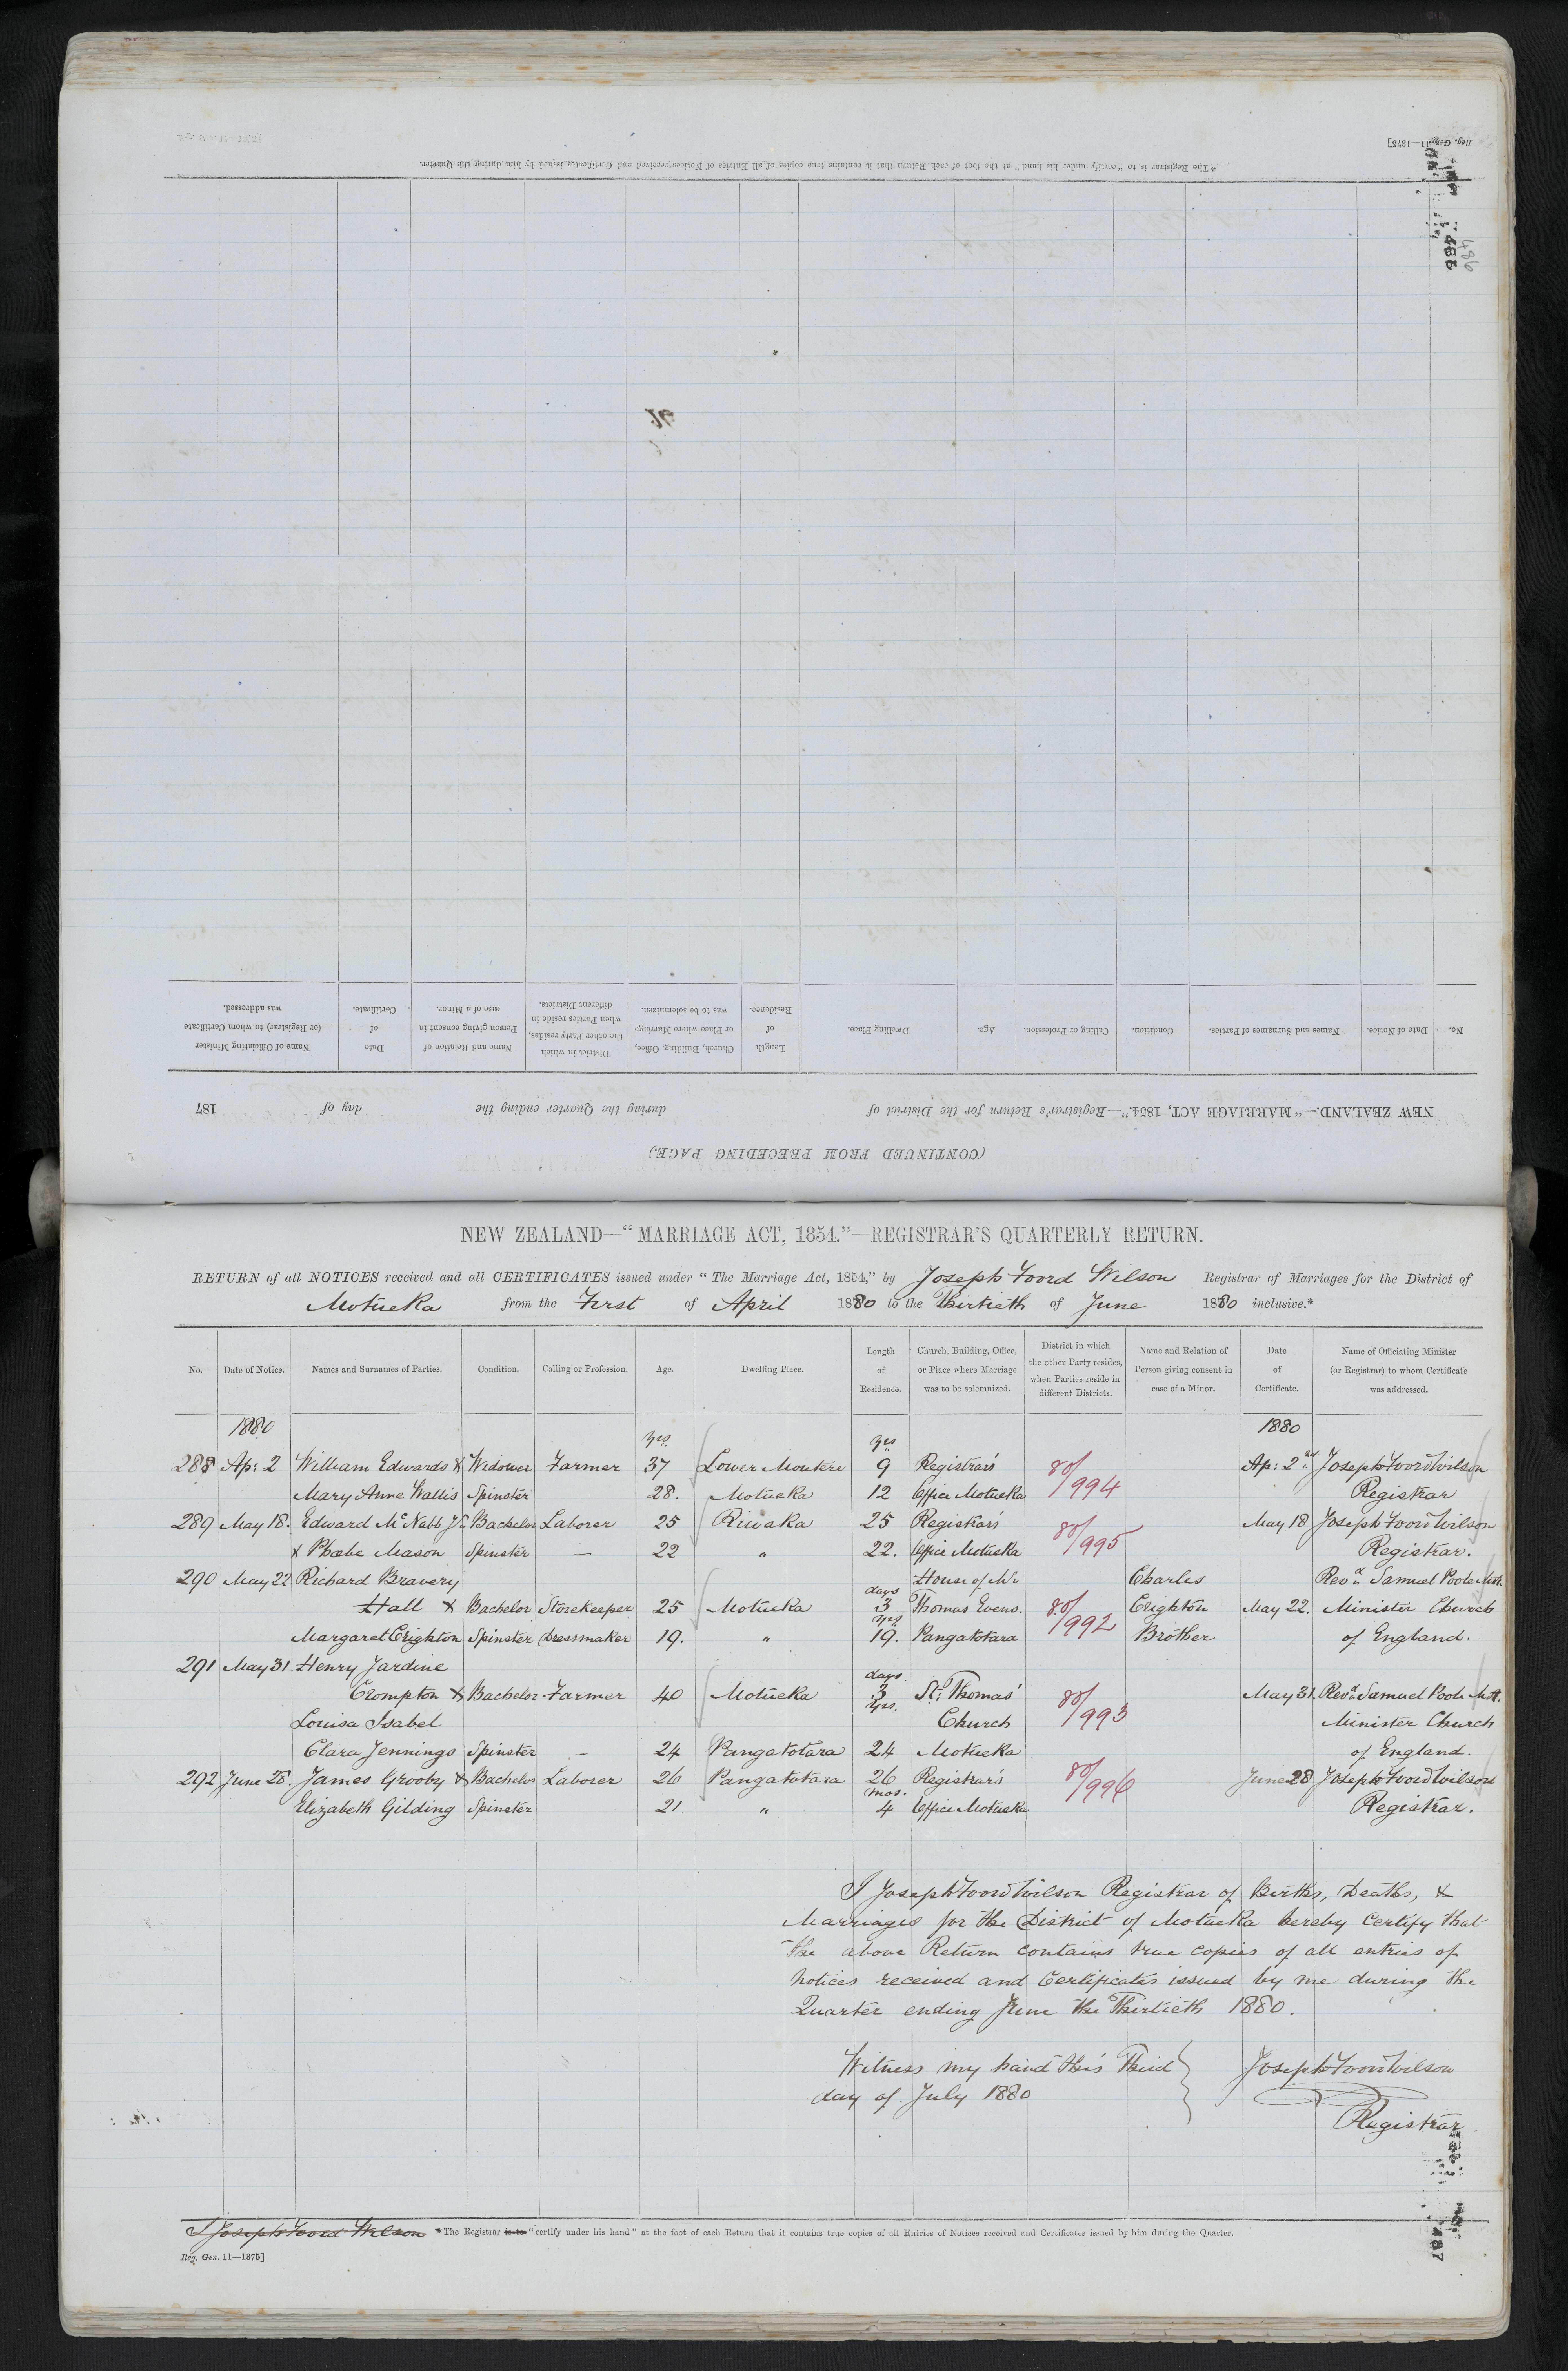 Reg. Gen. 11—1375]
*The Registrar is to "certify under his hand" at the foot of each Return that it contains true copies of all Entries of Notices received and Certificates issued by him during the Quarter.
486
486
(CONTINUED FROM PRECEDING PAGE.)
NEW ZEALAND.—"MARRIAGE ACT, 1854."—Registrar's Return for the District of during the Quarter ending the day of 187
No. Date of Notice. Names and Surnames of Parties. Condition. Calling or Profession. Age. Dwelling Place. Length of Residence. Church, Building, Office, or Place where Marriage was to be solemnized. District in which the other Party resides, when Parties reside in different Districts. Name and Relation of Person giving consent in case of a Minor. Date of Certificate. Name of Officiating Minister (or Registrar) to whom Certificate was addressed.
NEW ZEALAND—"MARRIAGE ACT, 1854."—REGISTRAR'S QUARTERLY RETURN.
RETURN of all NOTICES received and all CERTIFICATES issued under "The Marriage Act, 1854," by Joseph Foord Wilson Registrar of Marriages for the District of
Motueka from the First of April 1880 to the Thirtieth of June 1880 inclusive.*
No. Date of Notice. Names and Surnames of Parties. Condition. Calling or Profession. Age. Dwelling Place. Length of Residence. Church, Building, Office, or Place where Marriage was to be solemnized. District in which the other Party resides, when Parties reside in different Districts. Name and Relation of Person giving consent in case of a Minor. Date of Certificate. Name of Officiating Minister (or Registrar) to whom Certificate was addressed.
1880 yrs. yrs 1880
288 Ap: 2 William Edwards & Widower Farmer 37 Lower Moutere 9 Registrar's 80/994 Ap: 2nd Joseph Foord Wilson
Mary Anne Wallis Spinster 28. Motueka 12 Office Motueka Registrar
289 May 18. Edward McNabb Jr. Bachelor Laborer 25 Riwaka 25 Registrar's 80/995 May 18 Joseph Foord Wilson
& Phœbe Mason Spinster — 22 " 22. Office Motueka Registrar.
290 May 22 Richard Bravery House of Mr Charles Revd. Samuel Poole
days
Hall & Bachelor Storekeeper 25 Motueka 3 Thomas Evens. 80/992 Crighton May 22. Minister Church
yrs.
Margaret Crighton Spinster Dressmaker 19. " 19. Pangatotara Brother of England.
291 May 31 Henry Jardine
days.
Crompton & Bachelor Farmer 40 Motueka 3 St. Thomas' 80/993 May 31. Revd. Samuel Poole
yrs.
Louisa Isabel Church Minister Church
Clara Jennings Spinster — 24 Pangatotara 24 Motueka of England.
292 June 28. James Grooby & Bachelor Laborer 26 Pangatotara 26 Registrar's 80/996 June 28 Joseph Foord Wilson
mos.
Elizabeth Gilding Spinster 21. " 4 Office Motueka Registrar.
I Joseph Foord Wilson Registrar of Births, Deaths, &
Marriages for the District of Motueka hereby certify that
the above Return contains true copies of all entries of
notices received and Certificates issued by me during the
Quarter ending June the Thirtieth 1880.
Witness my hand this Third Joseph Foord Wilson
day of July 1880
Registrar
I Joseph Foord Wilson *The Registrar is to "certify under his hand" at the foot of each Return that it contains true copies of all Entries of Notices received and Certificates issued by him during the Quarter.
Reg. Gen. 11—1375]
487